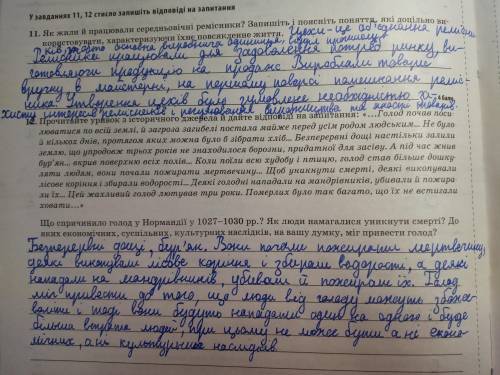 У завданнях 11, 12 стисло запишіть відповіді на запитання
11. Як жили й працювали середньовічні ремісники? Запишіть і поясніть поняття, які доцільно ви-
користовувати, характеризуючи їхнє повсякденне життя. Цехи - це об'єднання реміс
ників,
основна виробнича
Ремісники працювали для задоволення потреб ринку, ви-
готовляючи продукцію на продаж. Виробляли товари
вручну, в майстерні, на першому поверсі помешкання реміс-
ника. Утворення цехів було зумовлене необхідністю за-
хисту інтересів ремісників і виробництва та якості товарів.
12. Прочитайте уривок з історичного джерела й дайте відповіді на запитання: «…Голод почав поси-
люватися по всій землі, й загроза загибелі постала майже перед усім родом людським… Не було
й кількох днів, протягом яких можна було б зібрати хліб… Безперервні дощі настільки залили
землю, що упродовж трьох років не знаходилося борозни, придатної для засіву. А під час жнив
бур'ян… вкрив поверхню всіх полів… Коли поїли всю худобу і птицю, голод став більше дошку-
ляти людям, вони почали пожирати мертвечину… Щоб уникнути смерті, деякі викопували
лісове коріння і збирали водорості… Деякі голодні нападали на мандрівників, убивали й пожира-
ли їх… Цей жахливий голод лютував три роки. Померлих було так багато, що їх не встигали
ховати…»
Що спричинило голод у Нормандії у 1027–1030 рр.? Як люди намагалися уникнути смерті? До
яких економічних, суспільних, культурних наслідків, на вашу думку, міг призвести голод?
Безперервні дощі, бур'ян. Вони почали пожирати мертвечину,
деякі викопували лісове коріння і збирали водорості, а деякі
нападали на мандрівників, убивали й пожирали їх. Голод
міг привести до того, що люди від голоду можуть збоже-
воліти і тоді вони будуть нападати один на одного і буде
більша втрата людей, при цьому не може бути а ні еконо
мічних, а нь культурних наслідків.